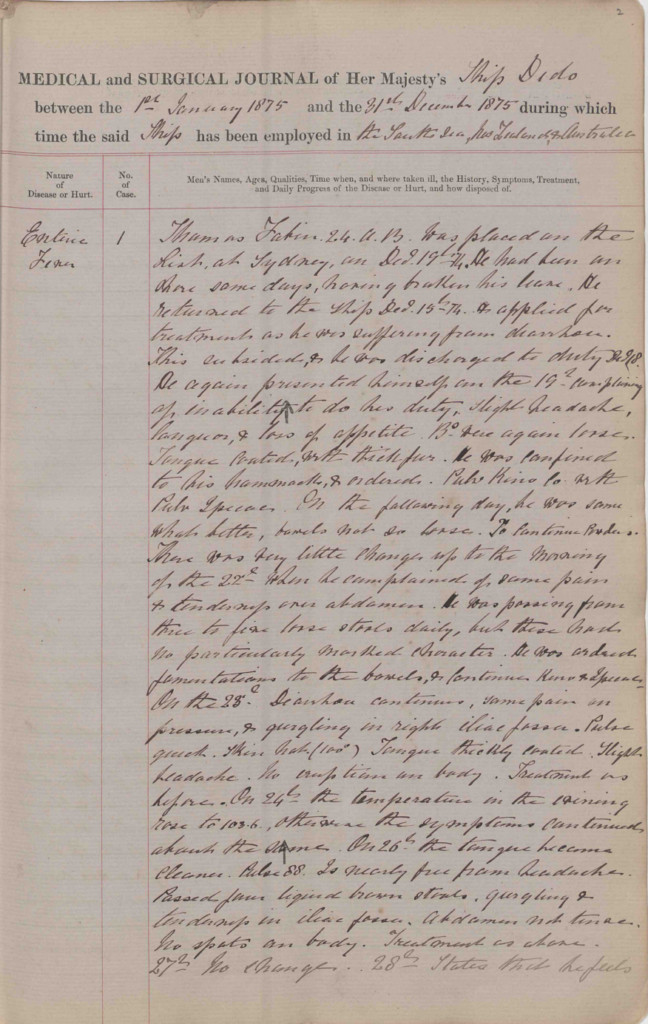 2
MEDICAL and SURGICAL JOURNAL of Her Majesty's Ship Dido
between the 1st January 1875 and the 31st December 1875 during which
time the said Ship has been employed in the South Sea, New Zealand & Australia
Nature
of
Disease or Hurt.
No.
of
Case.
Men's Names, Ages, Qualities, Time when, and where taken ill, the History, Symptoms, Treatment,
and Daily Progress of the Disease or Hurt, and how disposed of.
Enteric
Fever
1
Thomas 24. A.B. was placed on the
list, at Sydney, on Decr. 19th 74. He had been on
shore some days, having broken his leave. He
returned to the ship Decr. 15th 74. & applied for
treatment as he was suffering from diarrhoea.
This subsided, & he was discharged to duty 18.
He again presented himself on the 19th complaining
of inability to do his duty, slight headache,
languor, & loss of appetite. Bs. were again loose.
Tongue coated, with thick fur. He was confined
to his hammock, & ordered. Pulv Kino Co. with
Pulv Ipecac. On the following day, he was some
what better, bowels not so loose. To continue Powders.
There was very little change up to the morning
of the 22d when he complained of some pain
& tenderness over abdomen. He was passing from
three to five loose stools daily, but these had
no particularly marked character. He was ordered
fomentations to the bowels, & continue Kino & Ipecac.
On the 23d. Diarrhoea continues, some pain on
pressure, & gurgling in right iliac fossa. Pulse
quick. Skin hot (100°) Tongue thickly coated. Slight
headache. No eruption on body. Treatment as
before. On 24th the temperature in the evening
rose to 103.6, otherwise the symptoms continued
about the same. On 26th the tongue became
cleaner. Pulse 88. Is nearly free from headache.
Passed four liquid brown stools. gurgling &
tenderness in iliac fossa. Abdomen not tense.
No spots on body. Treatment as above.
27th No change. 28th States that he feels